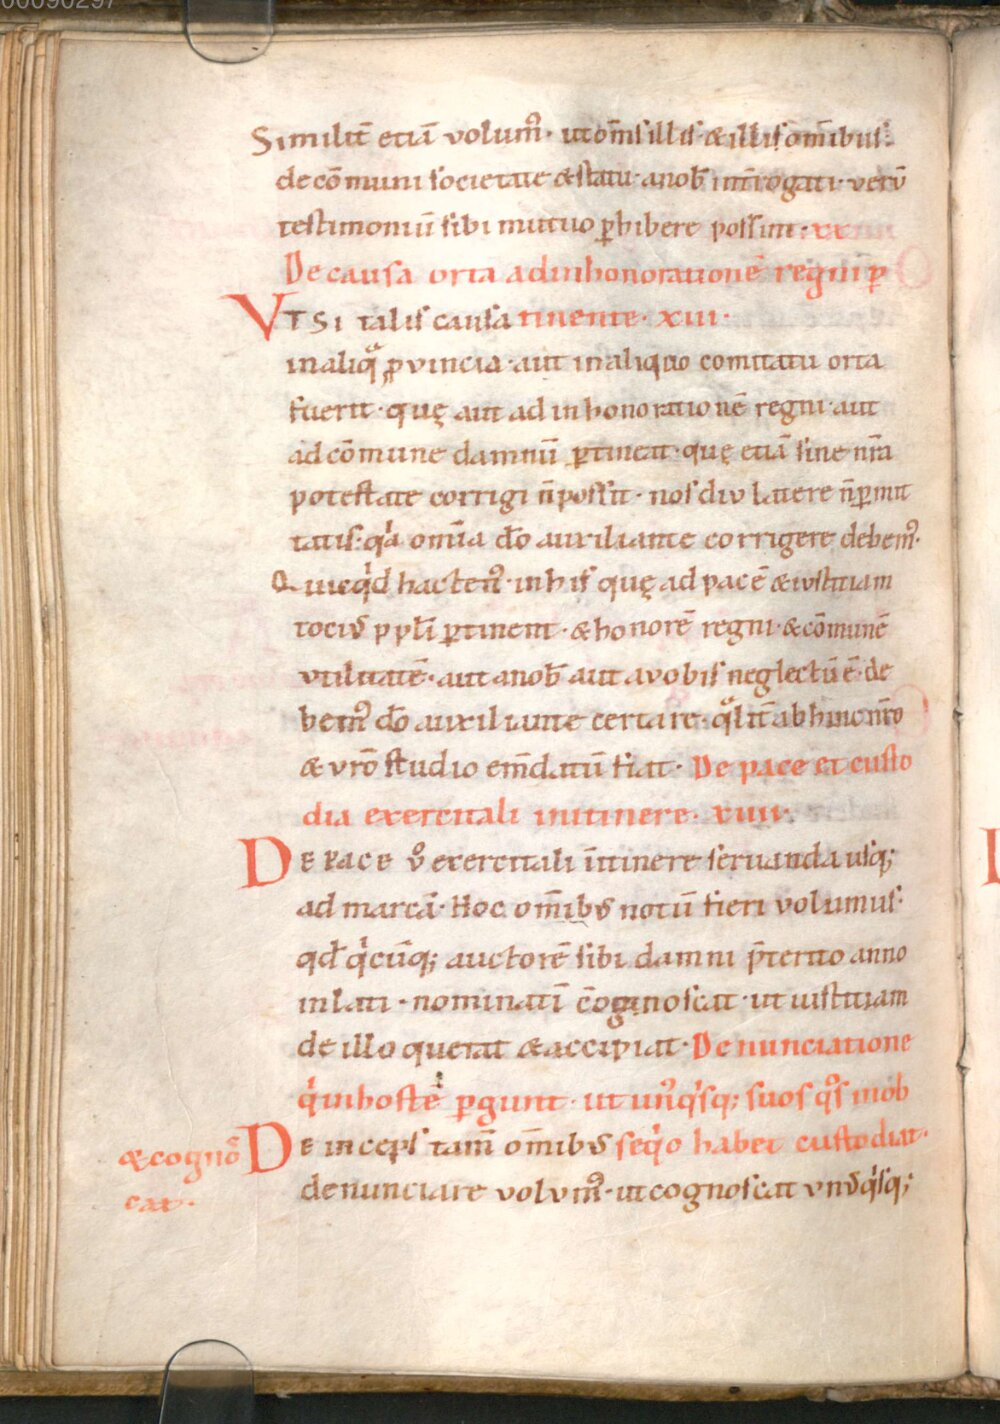 00090297
Similit̄ etiā volum᷒· ut om̄s illis· & illis om̄ibus·
de cōmuni societate & statu· a nob̄ int̄rogati· verū
testimoniū sibi mutuo ꝑhibere possint·
De causa orta ad inhonorationē regni ꝑ
VT Si talis causa tinente· xiii·
in aliqͣ ꝓvincia· aut in aliquo comitatu orta
fuerit· quę aut ad inhonorationē regni· aut
ad cōmune damnū ꝑtineat· quę etiā sine nr̄a
potestate corrigi n̄ possit· nos diu latere n̄ ꝑmit
tatis· qͥa om̄ia dō auxiliante corrigere debem᷒·
Quicqͥd hacten᷒· in his quę ad pacē & iustitiam
tocius ppl̄i ꝑtinent· & honorē regni· & cōmunē
utilitatē· aut a nob̄ aut a vobis neglectū ē· de
bem᷒ dō auxiliante certare· qͣlit̄ abhinc nr̄o
& vrō studio em̄datū fiat· De pace et custo
dia exercitali in itinere· xiiii·
DE PACE v͛o exercitali ītinere servanda usq;
ad marcā· Hoc om̄ibus notū fieri volumus·
qd̄ qͥcūq; auctorē sibi damni p̄terito anno
inlati· nominatī cognoscat· ut iustitiam
de illo querat & accipiat· De nunciatione
qͥ in hostē ꝑgunt· ut un᷒qͥsq; suos qͦs in ob
DE inceps tam̄ om̄ibus seqͥo habet custodiat·
& cogno
cat·
denunciare volum᷒· ut cognoscat unusqͥsq;